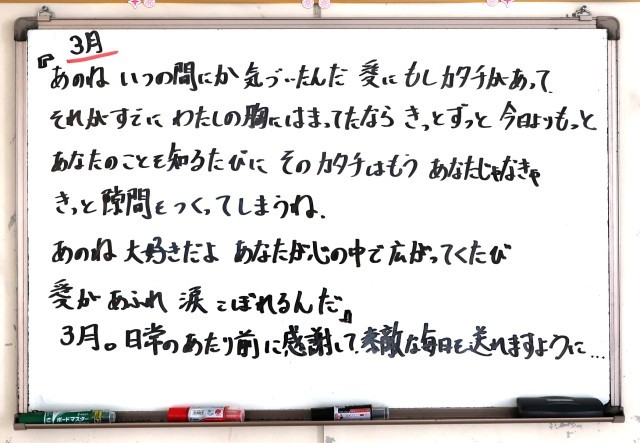 3月
『あのね いつの間にか 気づいたんだ 愛に もしカタチがあって
それがすでに わたしの胸にはまってたなら きっとずっと 今日よりもっと
あなたのことを知るたびに そのカタチはもう あなたじゃなきゃ
きっと 隙間をつくってしまうね。
あのね 大好きだよ あなたが心の中で広がってくたび
愛が あふれ 涙 こぼれるんだ』
3月。日常のあたり前に感謝して、素敵な毎日を送れますように…
ボードマスター